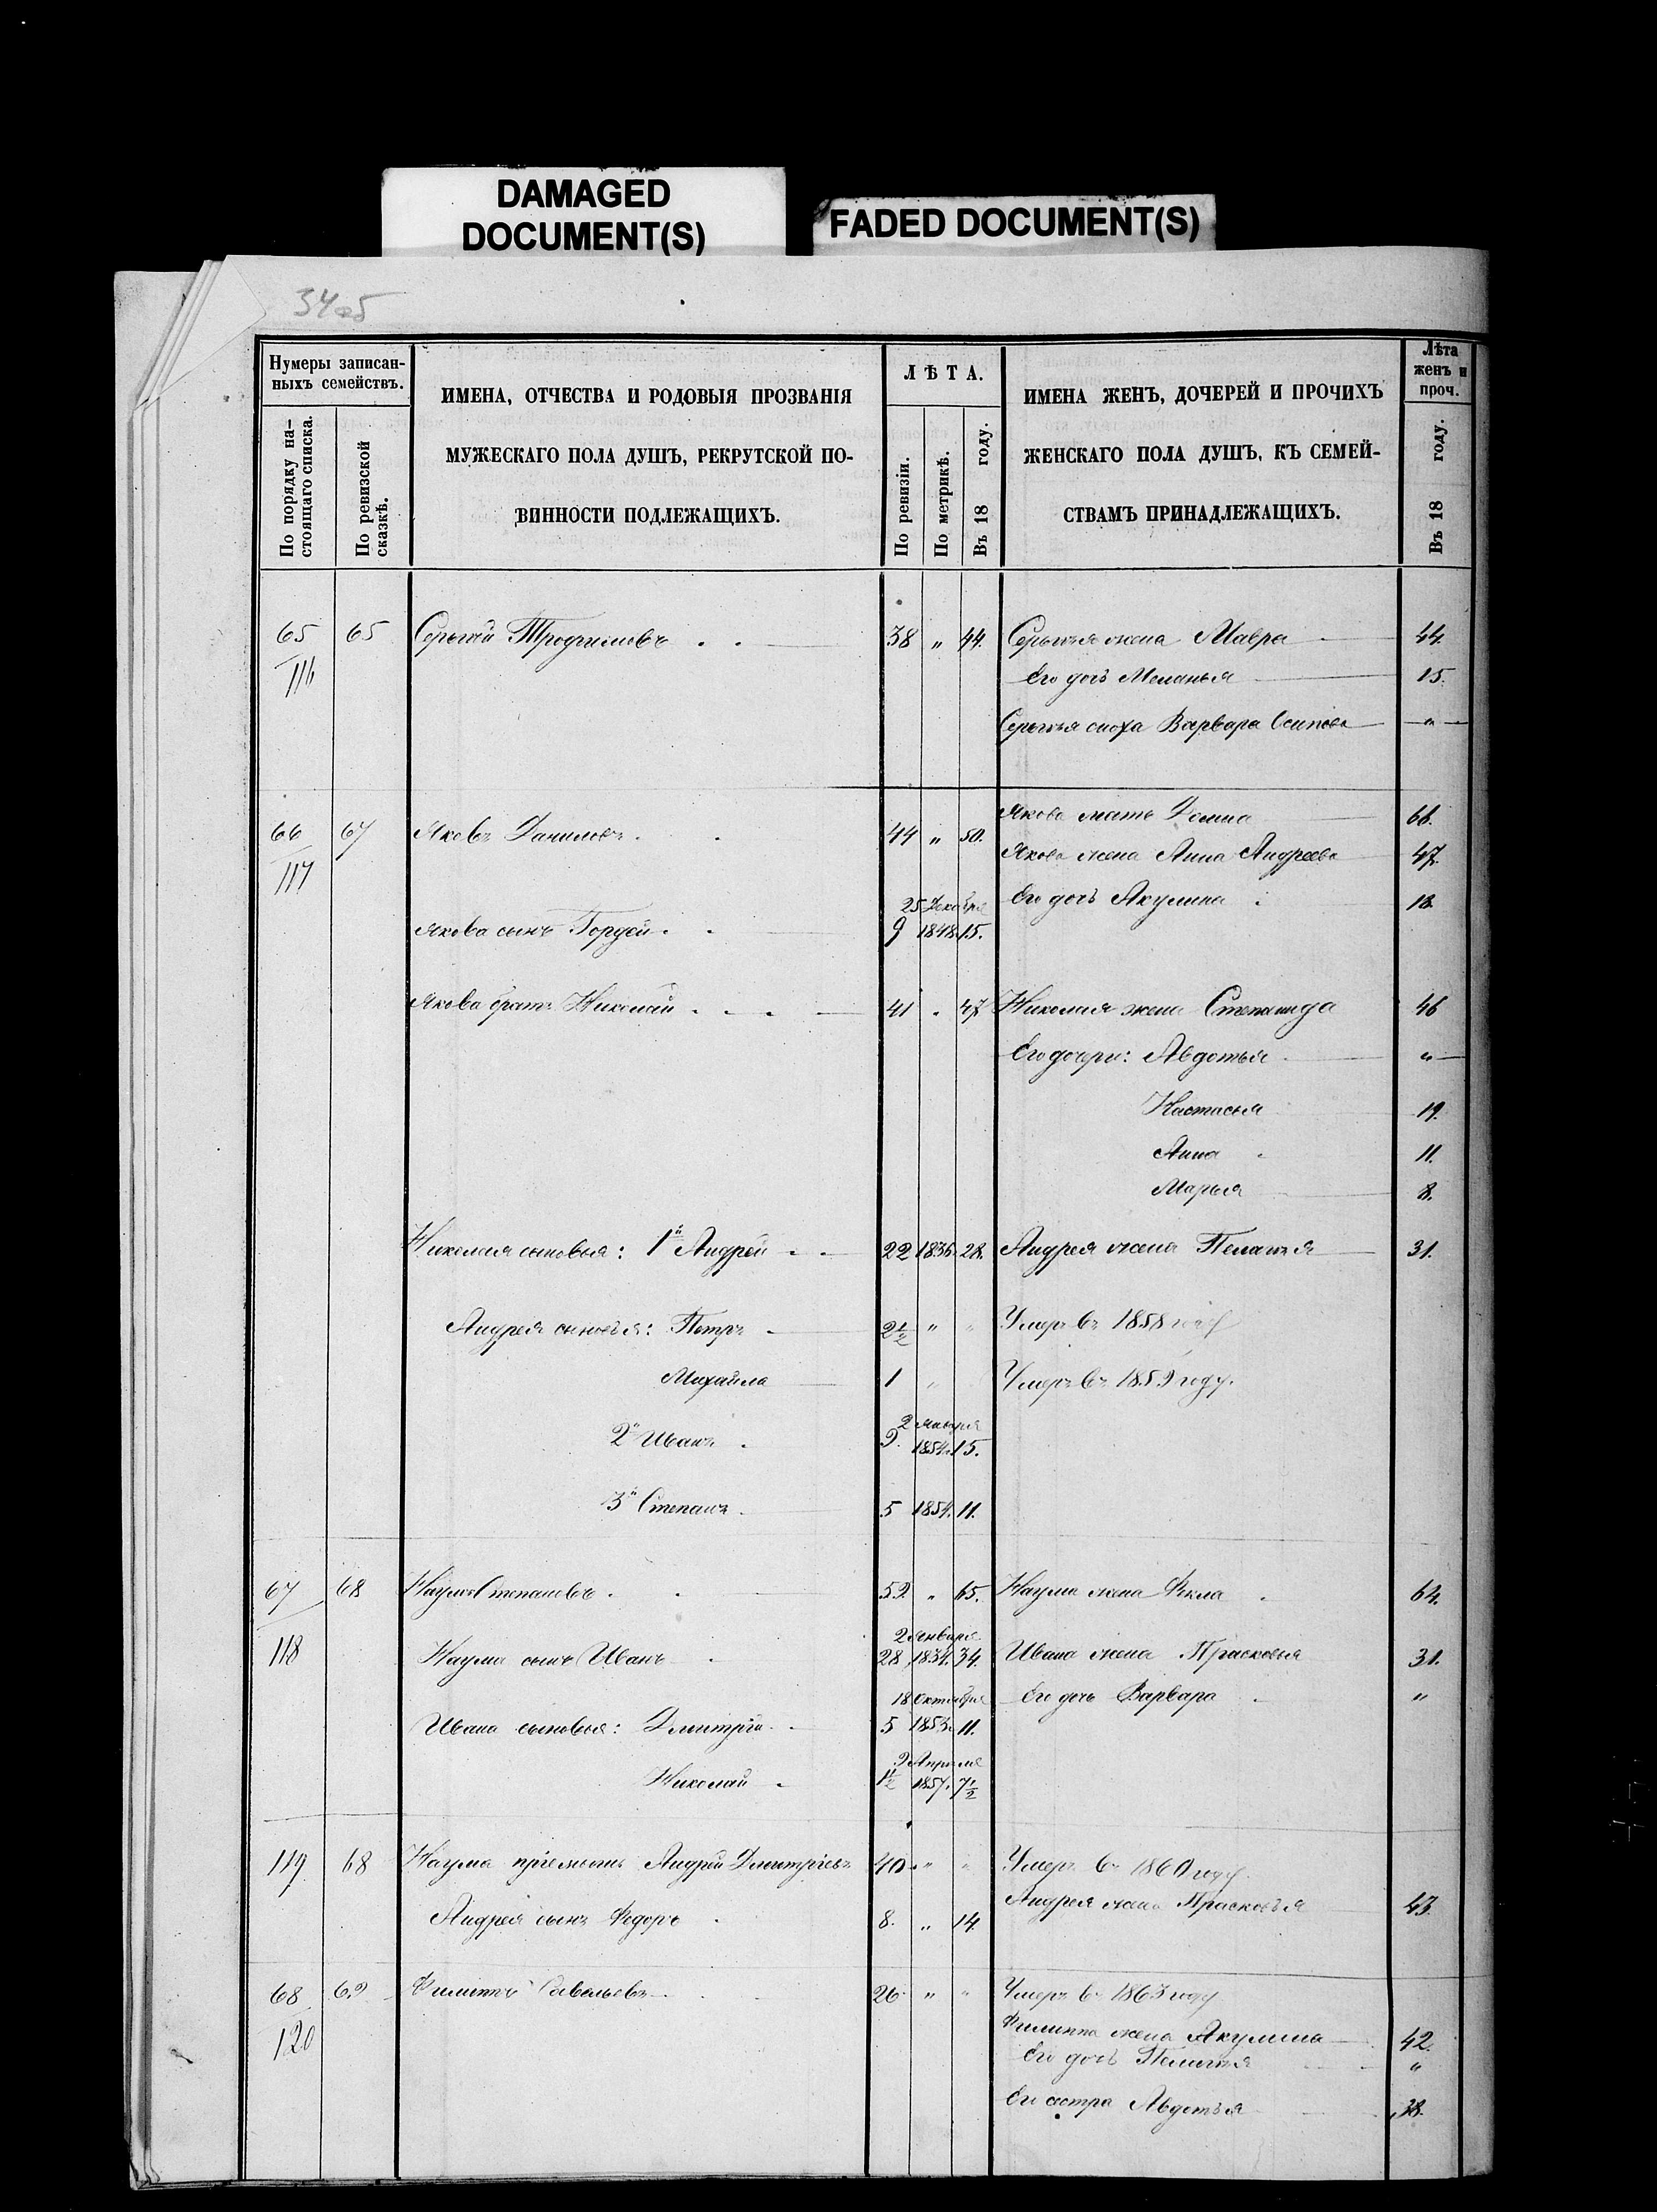 DAMAGED
DOCUMENT(S)
FADED DOCUMENT(S)
34об
Нумеры записан-
ныхъ семействъ.
По порядку на-
стоящаго списка.
По ревизской
сказкѣ.
ИМЕНА, ОТЧЕСТВА И РОДОВЫЯ ПРОЗВАНІЯ
МУЖЕСКАГО ПОЛА ДУШЪ, РЕКРУТСКОЙ ПО-
ВИННОСТИ ПОДЛЕЖАЩИХЪ.
ЛѢТА.
По ревизіи.
По метрикѣ.
Въ 18 году.
ИМЕНА ЖЕНЪ, ДОЧЕРЕЙ И ПРОЧИХЪ
ЖЕНСКАГО ПОЛА ДУШЪ, КЪ СЕМЕЙ-
СТВАМЪ ПРИНАДЛЕЖАЩИХЪ.
Лѣта
женъ и
проч.
Въ 18 году.
65 65 Сергѣй Трофимовъ 38 " 44. Сергѣя жена Мавра 44.
116 Его дочь Меланья 15.
Сергѣя сноха Варвара Осипова "
Якова мать Домна 66.
66 67 Яковъ Даниловъ 44 " 50.
Якова жена Анна Андреева 47.
117
25 Декабря Его дочь Акулина 18.
Якова сынъ Гордей 9 1848. 15.
Якова братъ Николай 41 " 47. Николая жена Степанида 46
Его дочери: Авдотья "
Настасья 19.
Анна 11.
Марья 8.
Николая сыновья: 1й Андрей 22 1836. 28. Андрея жена Пелагея 31.
Андрея сыновья: Петръ 2½ " " Умеръ въ 1858 году
Михайла 1 " Умеръ въ 1859 году.
2 Января
2й Иванъ 9. 1854. 15.
3й Степанъ 5 1854. 11.
67 68 Наумъ Степановъ 59 " 65. Наума жена Фекла 64.
2 Января
118 Наума сынъ Иванъ 28 1834. 34. Ивана жена Прасковья 31.
18 Октября Его дочь Варвара "
Ивана сыновья: Дмитрій 5 1853. 11.
9 Апреля
Николай 1½ 1857. 7½
119 68 Наума пріемышъ Андрей Дмитріевъ 40 " " Умеръ въ 1860 году.
Андрея жена Прасковья 43.
Андрея сынъ Федоръ 8. " 14
68 69 Филиппъ Савельевъ 26 " " Умеръ въ 1863 году
120 Филиппа жена Акулина 42.
Его дочь Пелагея "
Его сестра Авдотья 38.